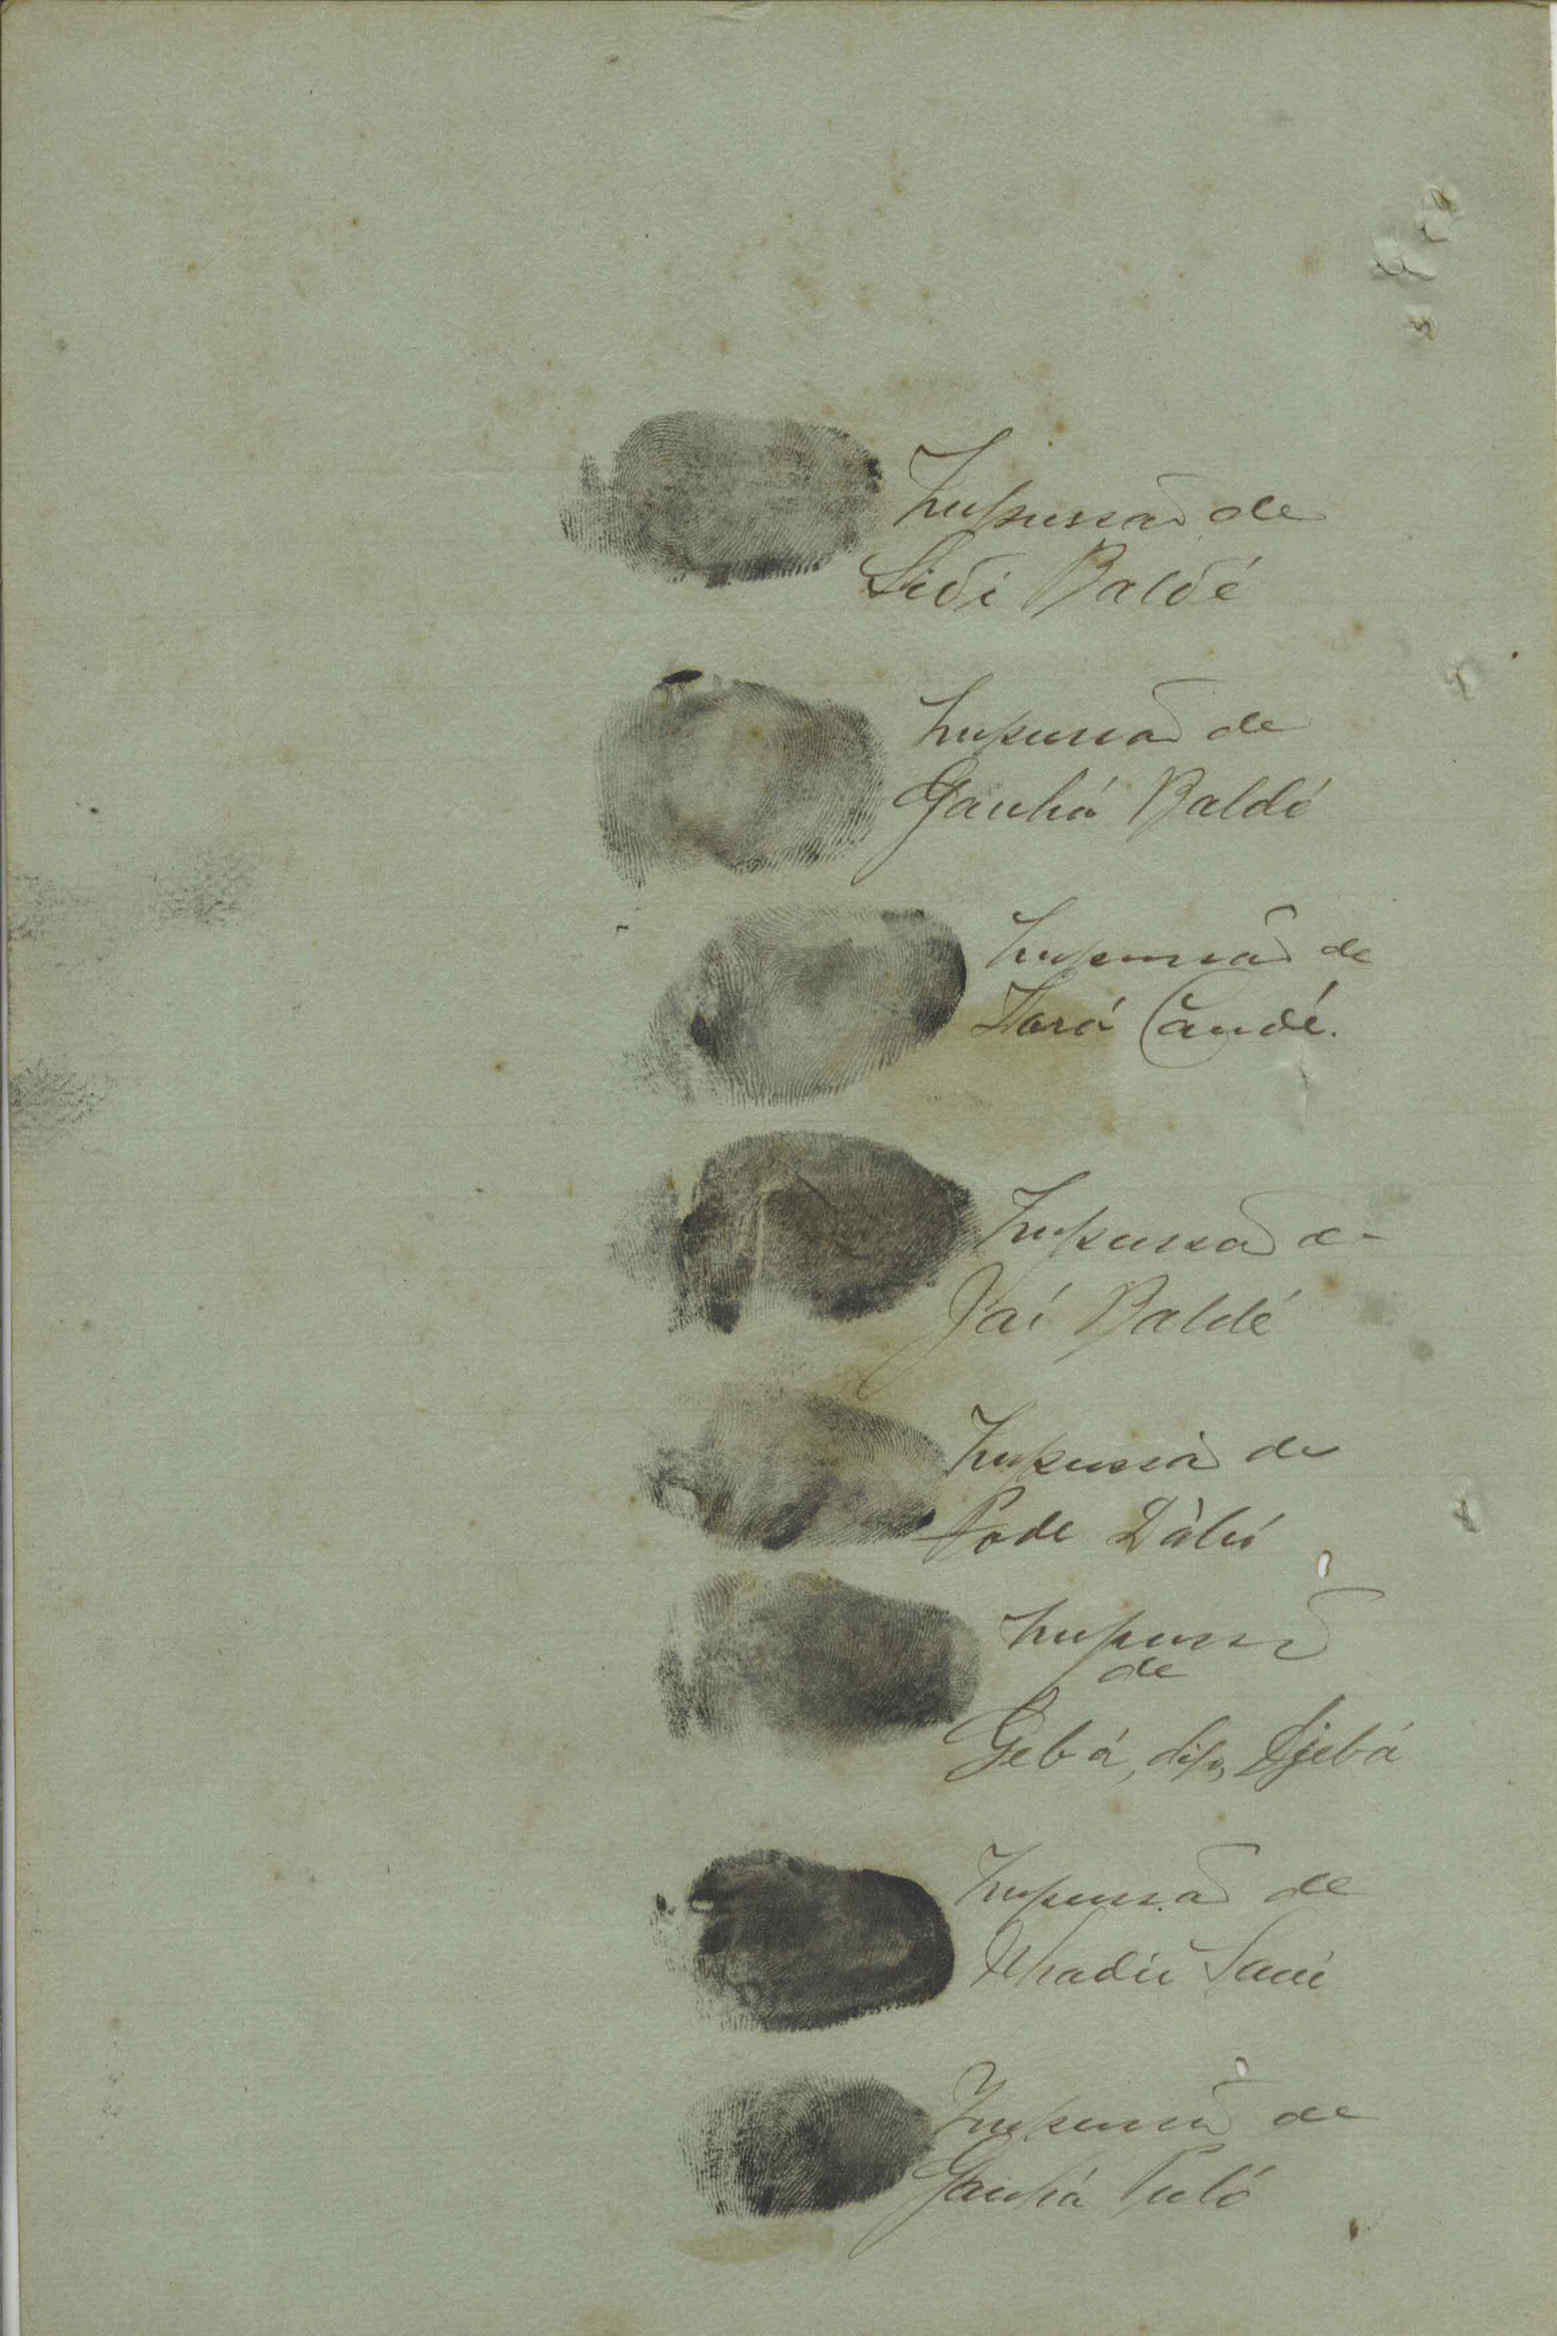 Impressão de
Sidi Baldé
Impressão de
Ganhá Baldé
Impressão de
Iará Candé.
Impressão de
Jaí Baldé
Impressão de
Pode Dábó
Impressão
de
Gebá, digo, Djebá
Impressão de
Sani
Impressão de
Ganhá Puló